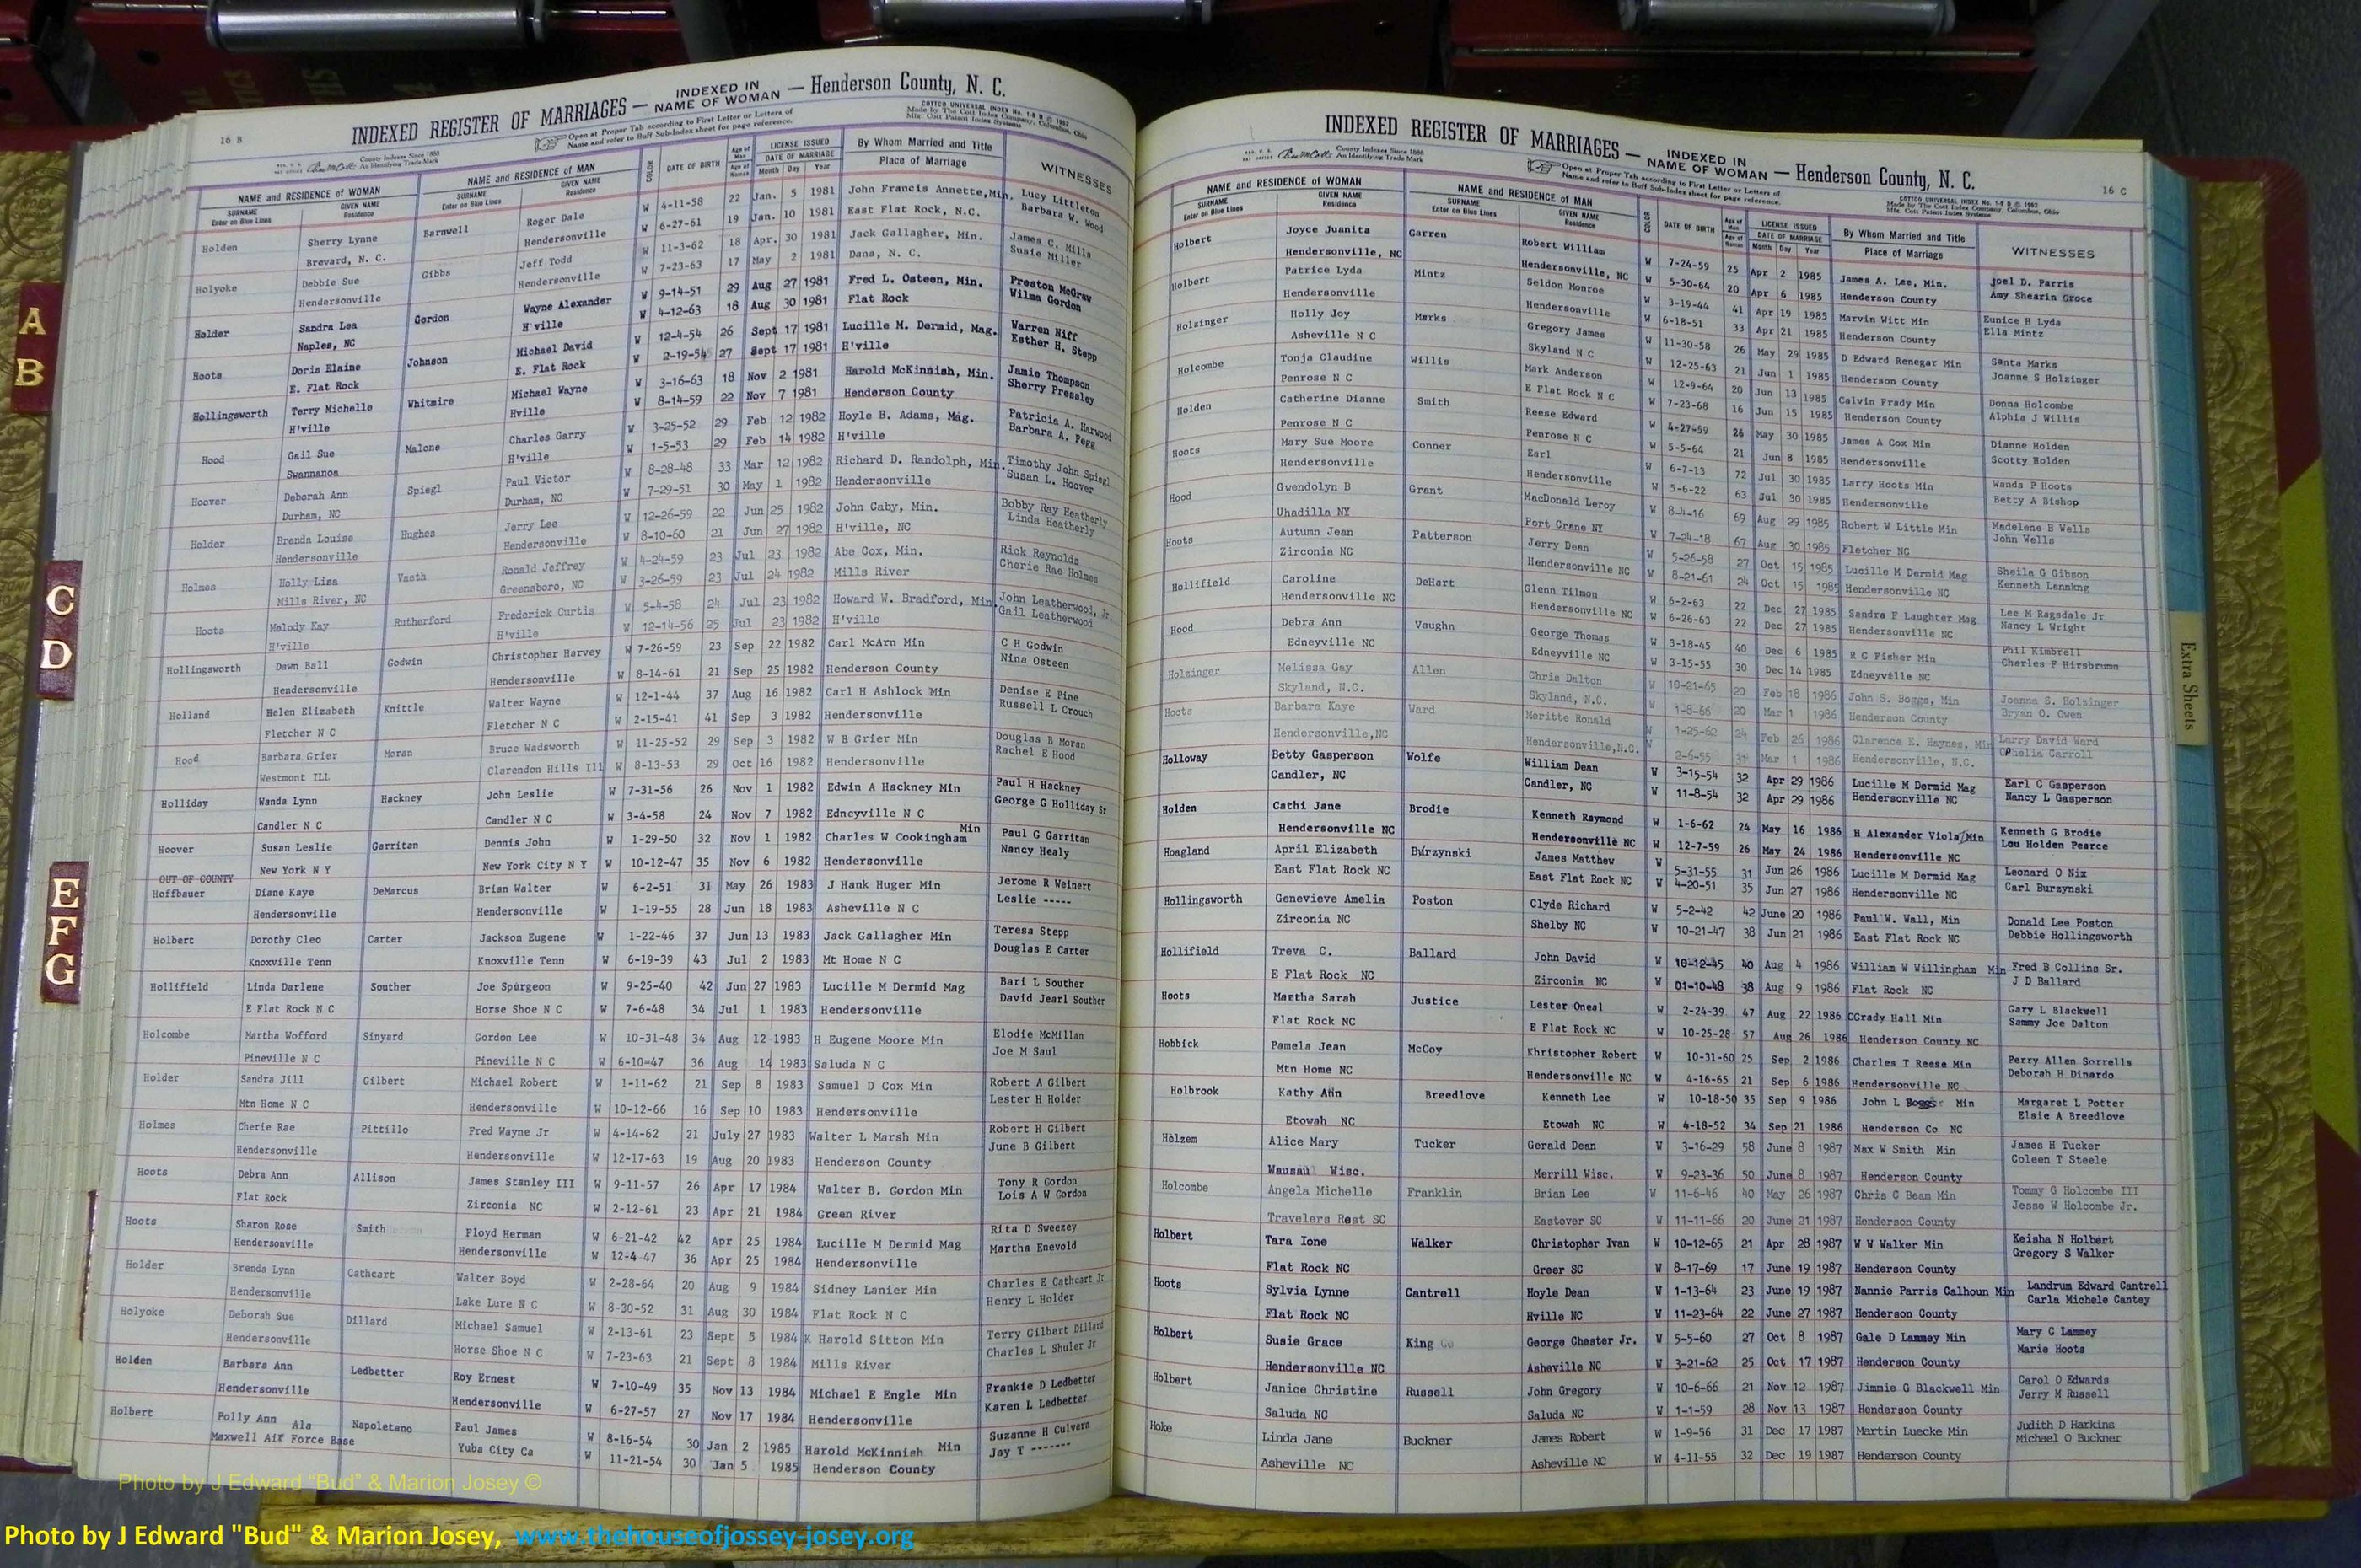 16 B
INDEXED REGISTER OF MARRIAGES — INDEXED IN NAME OF WOMAN — Henderson County, N. C.
County Indexes Since 1888 An Identifying Trade Mark
Open at Proper Tab according to First Letter or Letters of Name and refer to Buff Sub-Index sheet for page reference.
COTTCO UNIVERSAL INDEX No. 1-8 B © 1962
Made by The Cott Index Company, Columbus, Ohio
Mfg. Cott Patent Index Systems
NAME and RESIDENCE OF WOMAN NAME and RESIDENCE OF MAN COLOR DATE OF BIRTH Age of Man LICENSE ISSUED By Whom Married and Title WITNESSES
SURNAME Enter on Blue Lines GIVEN NAME Residence SURNAME Enter on Blue Lines GIVEN NAME Residence Age of Woman DATE OF MARRIAGE Month Day Year Place of Marriage
Holden Sherry Lynne Barnwell Roger Dale W 4-11-58 22 Jan. 5 1981 John Francis Annette, Min. Lucy Littleton
Brevard, N. C. Hendersonville W 6-27-61 19 Jan. 10 1981 East Flat Rock, N.C. Barbara W. Wood
Holyoke Debbie Sue Gibbs Jeff Todd W 11-3-62 18 Apr. 30 1981 Jack Gallagher, Min. James C. Mills
Hendersonville Hendersonville W 7-23-63 17 May 2 1981 Dana, N. C. Susie Miller
Holder Sandra Lea Gordon Wayne Alexander W 9-14-51 29 Aug 27 1981 Fred L. Osteen, Min. Preston McGraw
Naples, NC H'ville W 4-12-63 18 Aug 30 1981 Flat Rock Wilma Gordon
Hoots Doris Elaine Johnson Michael David W 12-4-54 26 Sept 17 1981 Lucille M. Dermid, Mag. Warren Niff
E. Flat Rock E. Flat Rock W 2-19-54 27 Sept 17 1981 H'ville Esther H. Stepp
Hollingsworth Terry Michelle Whitmire Michael Wayne W 3-16-63 18 Nov 2 1981 Harold McKinnish, Min. Jamie Thompson
H'ville Hville W 8-14-59 22 Nov 7 1981 Henderson County Sherry Pressley
Hood Gail Sue Malone Charles Garry W 3-25-52 29 Feb 12 1982 Hoyle B. Adams, Mag. Patricia A. Harwood
Swannanoa H'ville W 1-5-53 29 Feb 14 1982 H'ville Barbara A. Pegg
Hoover Deborah Ann Spiegl Paul Victor W 8-28-48 33 Mar 12 1982 Richard D. Randolph, Min. Timothy John Spiegl
Durham, NC Durham, NC W 7-29-51 30 May 1 1982 Hendersonville Susan L. Hoover
Holder Brenda Louise Hughes Jerry Lee W 12-26-59 22 Jun 25 1982 John Caby, Min. Bobby Ray Heatherly
Hendersonville Hendersonville W 8-10-60 21 Jun 27 1982 H'ville, NC Linda Heatherly
Holmes Holly Lisa Vasth Ronald Jeffrey W 4-24-59 23 Jul 23 1982 Abe Cox, Min. Rick Reynolds
Mills River, NC Greensboro, NC W 3-26-59 23 Jul 24 1982 Mills River Cherie Rae Holmes
Hoots Melody Kay Rutherford Frederick Curtis W 5-4-58 24 Jul 23 1982 Howard W. Bradford, Min. John Leatherwood, Jr.
H'ville H'ville W 12-14-56 25 Jul 23 1982 H'ville Gail Leatherwood
Hollingsworth Dawn Ball Godwin Christopher Harvey W 7-26-59 23 Sep 22 1982 Carl McArn Min C H Godwin
Hendersonville Hendersonville W 8-14-61 21 Sep 25 1982 Henderson County Nina Osteen
Holland Helen Elizabeth Knittle Walter Wayne W 12-1-44 37 Aug 16 1982 Carl H Ashlock Min Denise E Pine
Fletcher N C Fletcher N C W 2-15-41 41 Sep 3 1982 Hendersonville Russell L Crouch
Hood Barbara Grier Moran Bruce Wadsworth W 11-25-52 29 Sep 3 1982 W B Grier Min Douglas B Moran
Westmont ILL Clarendon Hills Ill W 8-13-53 29 Oct 16 1982 Hendersonville Rachel E Hood
Holliday Wanda Lynn Hackney John Leslie W 7-31-56 26 Nov 1 1982 Edwin A Hackney Min Paul H Hackney
Candler N C Candler N C W 3-4-58 24 Nov 7 1982 Edneyville N C George G Holliday Sr
Hoover Susan Leslie Garritan Dennis John W 1-29-50 32 Nov 1 1982 Charles W Cookingham Min Paul G Garritan
New York N Y New York City N Y W 10-12-47 35 Nov 6 1982 Hendersonville Nancy Healy
OUT OF COUNTY
Hoffbauer Diane Kaye DeMarcus Brian Walter W 6-2-51 31 May 26 1983 J Hank Huger Min Jerome R Weinert
Hendersonville Hendersonville W 1-19-55 28 Jun 18 1983 Asheville N C Leslie -----
Holbert Dorothy Cleo Carter Jackson Eugene W 1-22-46 37 Jun 13 1983 Jack Gallagher Min Teresa Stepp
Knoxville Tenn Knoxville Tenn W 6-19-39 43 Jul 2 1983 Mt Home N C Douglas E Carter
Hollifield Linda Darlene Souther Joe Spurgeon W 9-25-40 42 Jun 27 1983 Lucille M Dermid Mag Bari L Souther
E Flat Rock N C Horse Shoe N C W 7-6-48 34 Jul 1 1983 Hendersonville David Jearl Souther
Holcombe Martha Wofford Sinyard Gordon Lee W 10-31-48 34 Aug 12 1983 H Eugene Moore Min Elodie McMillan
Pineville N C Pineville N C W 6-10=47 36 Aug 14 1983 Saluda N C Joe M Saul
Holder Sandra Jill Gilbert Michael Robert W 1-11-62 21 Sep 8 1983 Samuel D Cox Min Robert A Gilbert
Mtn Home N C Hendersonville W 10-12-66 16 Sep 10 1983 Hendersonville Lester H Holder
Holmes Cherie Rae Pittillo Fred Wayne Jr W 4-14-62 21 July 27 1983 Walter L Marsh Min Robert H Gilbert
Hendersonville Hendersonville W 12-17-63 19 Aug 20 1983 Henderson County June B Gilbert
Hoots Debra Ann Allison James Stanley III W 9-11-57 26 Apr 17 1984 Walter B. Gordon Min Tony R Gordon
Flat Rock Zirconia NC W 2-12-61 23 Apr 21 1984 Green River Lois A W Gordon
Hoots Sharon Rose Smith Floyd Herman W 6-21-42 42 Apr 25 1984 Lucille M Dermid Mag Rita D Sweezey
Hendersonville Hendersonville W 12-4 47 36 Apr 25 1984 Hendersonville Martha Enevold
Holder Brenda Lynn Cathcart Walter Boyd W 2-28-64 20 Aug 9 1984 Sidney Lanier Min Charles E Cathcart Jr
Hendersonville Lake Lure N C W 8-30-52 31 Aug 30 1984 Flat Rock N C Henry L Holder
Holyoke Deborah Sue Dillard Michael Samuel W 2-13-61 23 Sept 5 1984 K Harold Sitton Min Terry Gilbert Dillard
Hendersonville Horse Shoe N C W 7-23-63 21 Sept 8 1984 Mills River Charles L Shuler Jr
Holden Barbara Ann Ledbetter Roy Ernest W 7-10-49 35 Nov 13 1984 Michael E Engle Min Frankie D Ledbetter
Hendersonville Hendersonville W 6-27-57 27 Nov 17 1984 Hendersonville Karen L Ledbetter
Holbert Polly Ann Ala Napoletano Paul James W 8-16-54 30 Jan 2 1985 Harold McKinnish Min Suzanne H Culvern
Maxwell Air Force Base Yuba City Ca W 11-21-54 30 Jan 5 1985 Henderson County Jay T -------
16 C
INDEXED REGISTER OF MARRIAGES — INDEXED IN NAME OF WOMAN — Henderson County, N. C.
County Indexes Since 1888 An Identifying Trade Mark
Open at Proper Tab according to First Letter or Letters of Name and refer to Buff Sub-Index sheet for page reference.
COTTCO UNIVERSAL INDEX No. 1-8 B © 1962
Made by The Cott Index Company, Columbus, Ohio
Mfg. Cott Patent Index Systems
NAME and RESIDENCE OF WOMAN NAME and RESIDENCE OF MAN COLOR DATE OF BIRTH Age of Man LICENSE ISSUED By Whom Married and Title WITNESSES
SURNAME Enter on Blue Lines GIVEN NAME Residence SURNAME Enter on Blue Lines GIVEN NAME Residence Age of Woman DATE OF MARRIAGE Month Day Year Place of Marriage
Holbert Joyce Juanita Garren Robert William W 7-24-59 25 Apr 2 1985 James A. Lee, Min. Joel D. Parris
Hendersonville, NC Hendersonville, NC W 5-30-64 20 Apr 6 1985 Henderson County Amy Shearin Groce
Holbert Patrice Lyda Mintz Seldon Monroe W 3-19-44 41 Apr 19 1985 Marvin Witt Min Eunice H Lyda
Hendersonville Hendersonville W 6-18-51 33 Apr 21 1985 Henderson County Ella Mintz
Holzinger Holly Joy Marks Gregory James W 11-30-58 26 May 29 1985 D Edward Renegar Min Santa Marks
Asheville N C Skyland N C W 12-25-63 21 Jun 1 1985 Henderson County Joanne S Holzinger
Holcombe Tonja Claudine Willis Mark Anderson W 12-9-64 20 Jun 13 1985 Calvin Frady Min Donna Holcombe
Penrose N C E Flat Rock N C W 7-23-68 16 Jun 15 1985 Henderson County Alphia J Willis
Holden Catherine Dianne Smith Reese Edward W 4-27-59 26 May 30 1985 James A Cox Min Dianne Holden
Penrose N C Penrose N C W 5-5-64 21 Jun 8 1985 Hendersonville Scotty Holden
Hoots Mary Sue Moore Conner Earl W 6-7-13 72 Jul 30 1985 Larry Hoots Min Wanda P Hoots
Hendersonville Hendersonville W 5-6-22 63 Jul 30 1985 Hendersonville Betty A Bishop
Hood Gwendolyn B Grant MacDonald Leroy W 8-4-16 69 Aug 29 1985 Robert W Little Min Madelene B Wells
Uhadilla NY Port Crane NY W 7-24-18 67 Aug 30 1985 Fletcher NC John Wells
Hoots Autumn Jean Patterson Jerry Dean W 5-26-58 27 Oct 15 1985 Lucille M Dermid Mag Sheila G Gibson
Zirconia NC Hendersonville NC W 8-21-61 24 Oct 15 1985 Hendersonville NC Kenneth Lennkng
Hollifield Caroline DeHart Glenn Tilmon W 6-2-63 22 Dec 27 1985 Sandra F Laughter Mag Lee M Ragsdale Jr
Hendersonville NC Hendersonville NC W 6-26-63 22 Dec 27 1985 Hendersonville NC Nancy L Wright
Hood Debra Ann Vaughn George Thomas W 3-18-45 40 Dec 6 1985 R G Fisher Min Phil Kimbrell
Edneyville NC Edneyville NC W 3-15-55 30 Dec 14 1985 Edneyville NC Charles F Hirsbrumn
Holzinger Melissa Gay Allen Chris Dalton W 10-21-65 20 Feb 18 1986 John S. Boggs, Min Joanna S. Holzinger
Skyland, N.C. Skyland, N.C. W 1-8-66 20 Mar 1 1986 Henderson County Bryan O. Owen
Hoots Barbara Kaye Ward Meritte Ronald W 1-25-62 24 Feb 26 1986 Clarence E. Haynes, Min Larry David Ward
Hendersonville,NC Hendersonville,N.C. W 2-6-55 31 Mar 1 1986 Hendersonville, N.C. Ophelia Carroll
Holloway Betty Gasperson Wolfe William Dean W 3-15-54 32 Apr 29 1986 Lucille M Dermid Mag Earl C Gasperson
Candler, NC Candler, NC W 11-8-54 32 Apr 29 1986 Hendersonville NC Nancy L Gasperson
Holden Cathi Jane Brodie Kenneth Raymond W 1-6-62 24 May 16 1986 H Alexander Viola/Min Kenneth G Brodie
Hendersonville NC Hendersonville NC W 12-7-59 26 May 24 1986 Hendersonville NC Lou Holden Pearce
Hoagland April Elizabeth Burzynski James Matthew W 5-31-55 31 Jun 26 1986 Lucille M Dermid Mag Leonard O Nix
East Flat Rock NC East Flat Rock NC W 4-20-51 35 Jun 27 1986 Hendersonville NC Carl Burzynski
Hollingsworth Genevieve Amelia Poston Clyde Richard W 5-2-42 42 June 20 1986 Paul W. Wall, Min Donald Lee Poston
Zirconia NC Shelby NC W 10-21-47 38 Jun 21 1986 East Flat Rock NC Debbie Hollingsworth
Hollifield Treva C. Ballard John David W 10-12-45 40 Aug 4 1986 William W Willingham Min Fred B Collins Sr.
E Flat Rock NC Zirconia NC W 01-10-48 38 Aug 9 1986 Flat Rock NC J D Ballard
Hoots Martha Sarah Justice Lester Oneal W 2-24-39 47 Aug 22 1986 CGrady Hall Min Gary L Blackwell
Flat Rock NC E Flat Rock NC W 10-25-28 57 Aug 26 1986 Henderson County NC Sammy Joe Dalton
Hobbick Pamela Jean McCoy Khristopher Robert W 10-31-60 25 Sep 2 1986 Charles T Reese Min Perry Allen Sorrells
Mtn Home NC Hendersonville NC W 4-16-65 21 Sep 6 1986 Hendersonville NC Deborah H Dinardo
Holbrook Kathy Ann Breedlove Kenneth Lee W 10-18-50 35 Sep 9 1986 John L Boggs Min Margaret L Potter
Etowah NC Etowah NC W 4-18-52 34 Sep 21 1986 Henderson Co NC Elsie A Breedlove
Holzem Alice Mary Tucker Gerald Dean W 3-16-29 58 June 8 1987 Max W Smith Min James H Tucker
Wausau Wisc. Merrill Wisc. W 9-23-36 50 June 8 1987 Henderson County Coleen T Steele
Holcombe Angela Michelle Franklin Brian Lee W 11-6-46 40 May 26 1987 Chris C Beam Min Tommy G Holcombe III
Travelers Rest SC Eastover SC W 11-11-66 20 June 21 1987 Henderson County Jesse W Holcombe Jr.
Holbert Tara Ione Walker Christopher Ivan W 10-12-65 21 Apr 28 1987 W W Walker Min Keisha N Holbert
Flat Rock NC Greer SC W 8-17-69 17 June 19 1987 Henderson County Gregory S Walker
Hoots Sylvia Lynne Cantrell Hoyle Dean W 1-13-64 23 June 19 1987 Nannie Parris Calhoun Min Landrum Edward Cantrell
Flat Rock NC Hville NC W 11-23-64 22 June 27 1987 Henderson County Carla Michele Cantey
Holbert Susie Grace King George Chester Jr. W 5-5-60 27 Oct 8 1987 Gale D Lammey Min Mary C Lammey
Hendersonville NC Asheville NC W 3-21-62 25 Oct 17 1987 Henderson County Marie Hoots
Holbert Janice Christine Russell John Gregory W 10-6-66 21 Nov 12 1987 Jimmie G Blackwell Min Carol O Edwards
Saluda NC Saluda NC W 1-1-59 28 Nov 13 1987 Henderson County Jerry M Russell
Hoke Linda Jane Buckner James Robert W 1-9-56 31 Dec 17 1987 Martin Luecke Min Judith D Harkins
Asheville NC Asheville NC W 4-11-55 32 Dec 19 1987 Henderson County Michael O Buckner
A
B
C
D
E
F
G
Extra Sheets
Photo by J Edward "Bud" & Marion Josey ©
Photo by J Edward "Bud" & Marion Josey, www.thehouseofjossey-josey.org